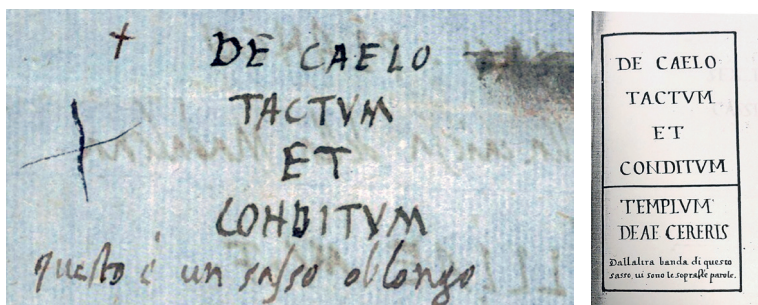 DE CAELO
TACTVM
ET
CONDITVM
questo è un sasso oblongo
DE CAELO
TACTVM
ET
CONDITVM
TEMPLVM
DEAE CERERIS
Dallaltra banda di questo
sasso, ui sono le sopraste parole.